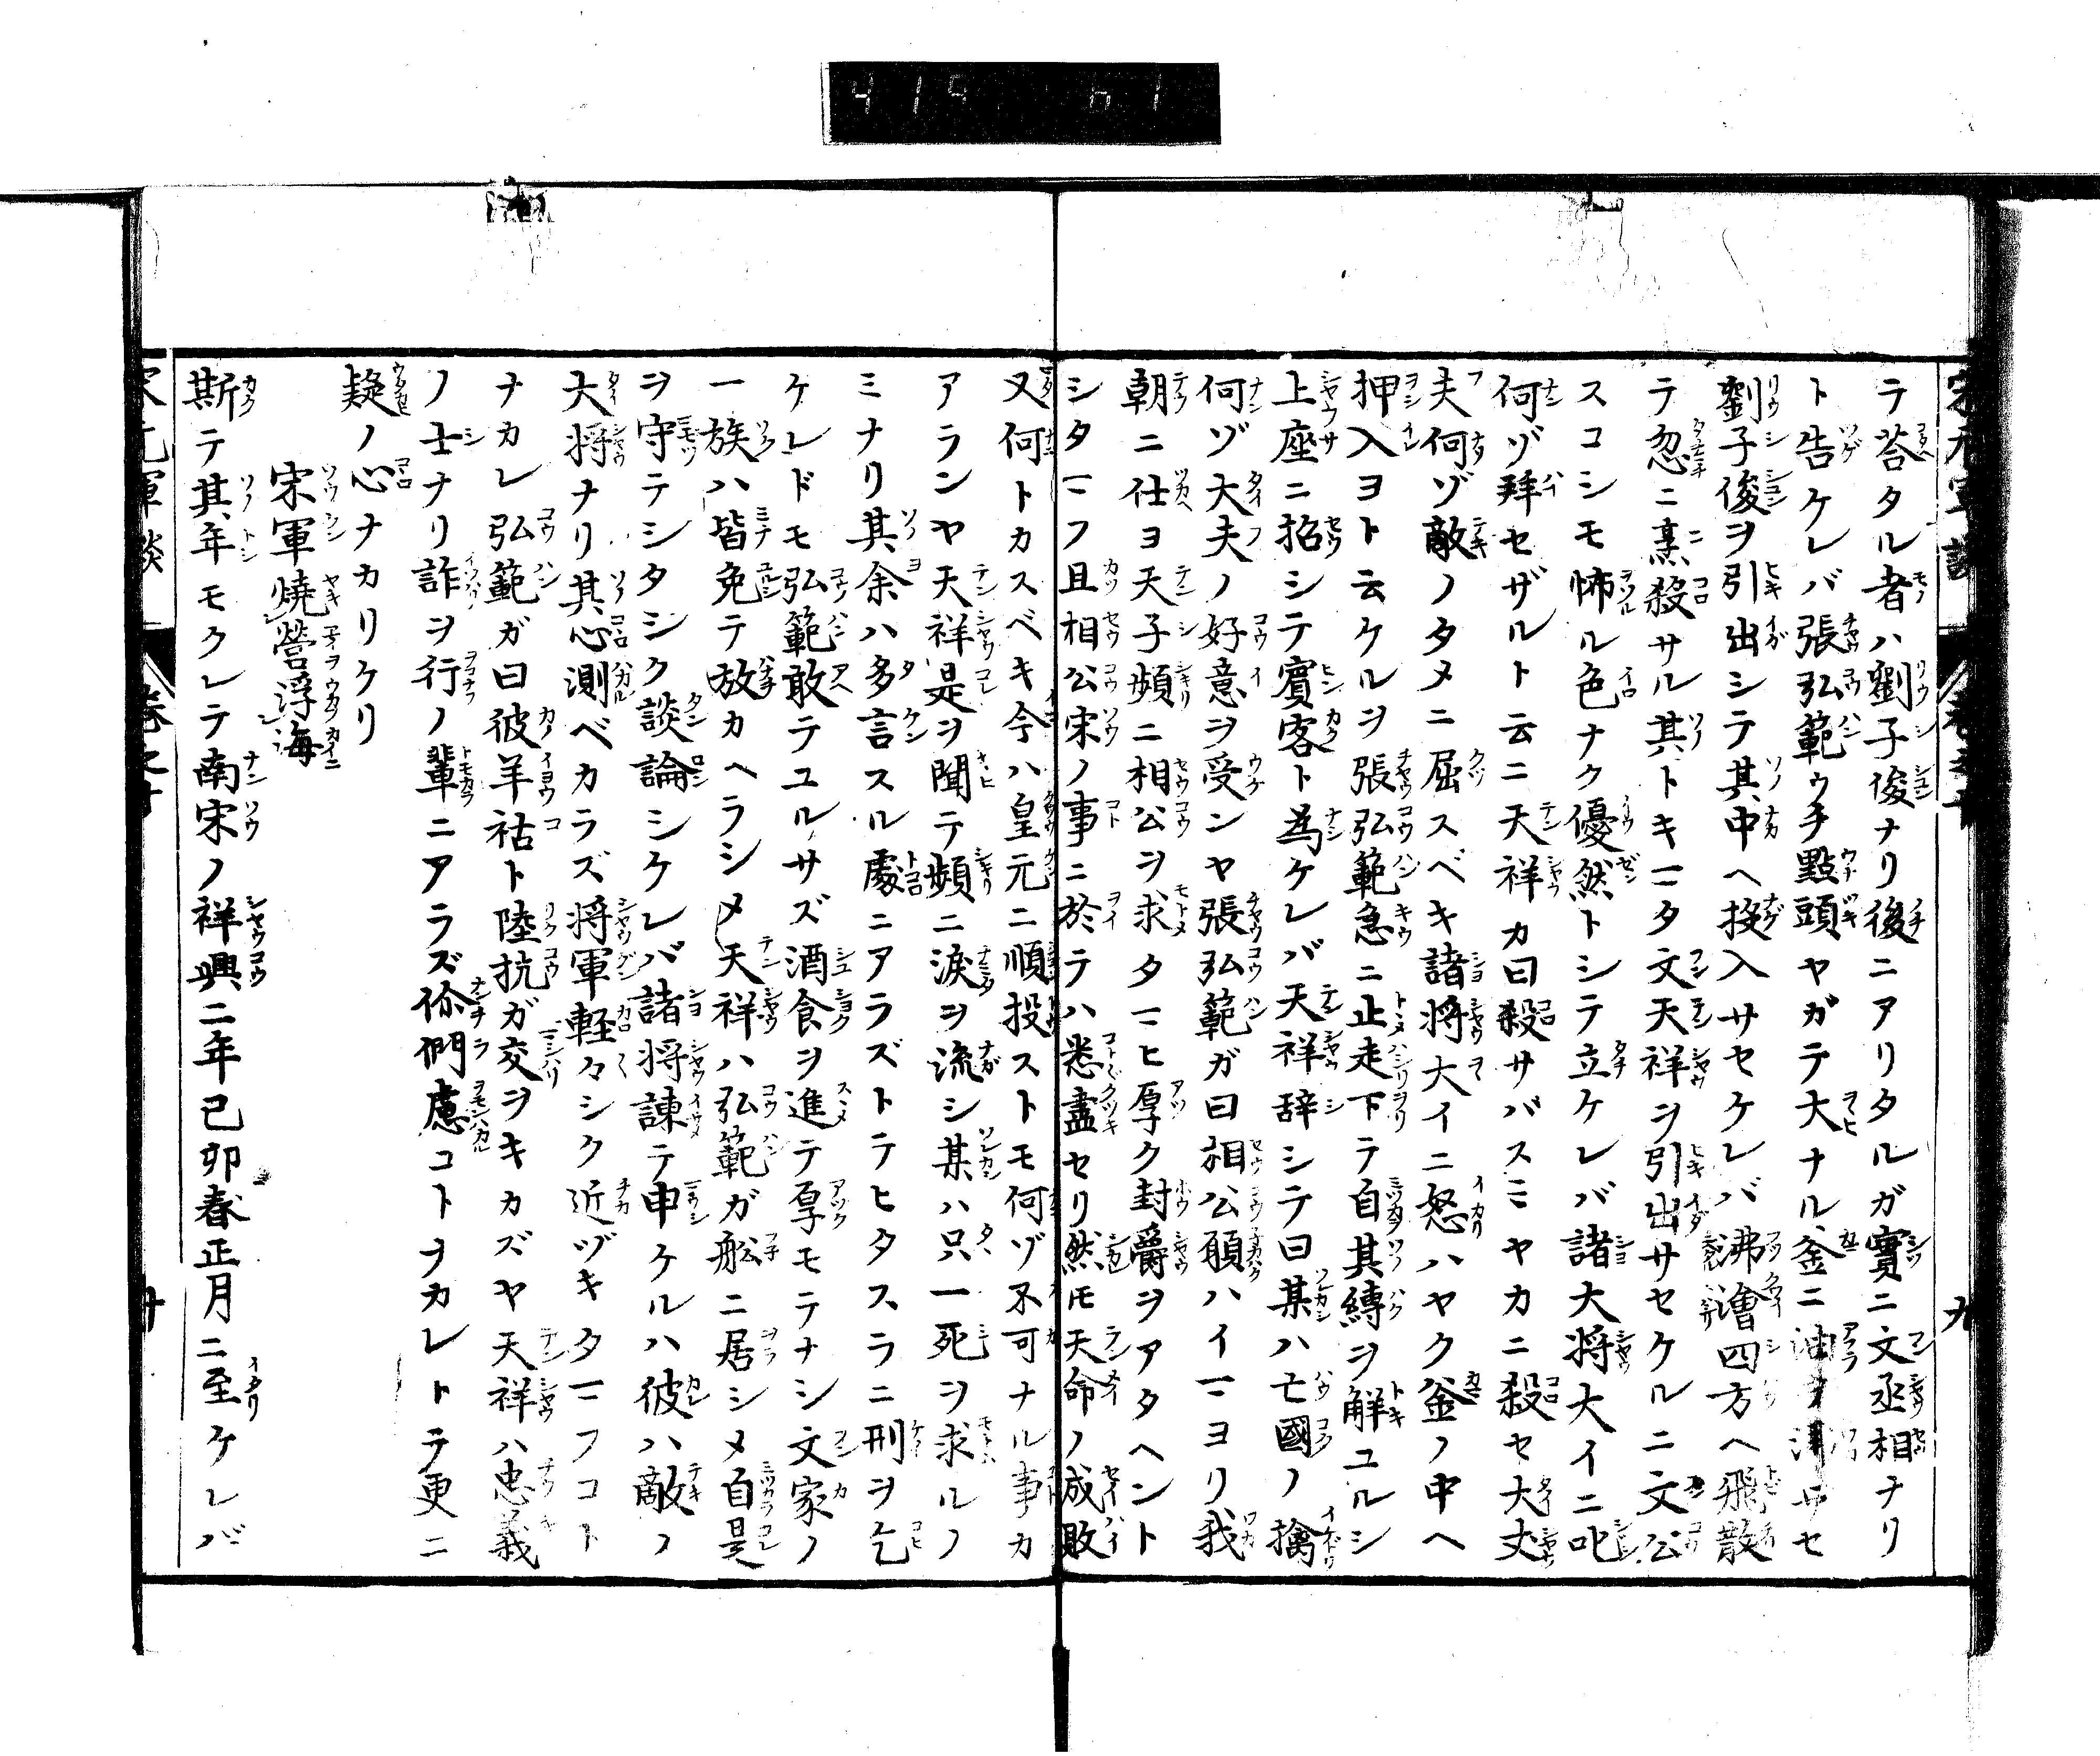 テ荅タル者ハ劉子俊ナリ後ニアリタルガ實ニ文丞相ナリ
ト告ケレバ張弘範ウ手點頭ヤガテ大ナル釜ニ油ヲ サセ
劉子俊ヲ引出シテ其中ヘ投入サセケレバ沸 四方ヘ飛散
テ忽ニ烹殺サル其トキマタ文天祥ヲ引出サセケルニ文公
スコシモ怖ル色ナク優然トシテ立ケレバ諸大将大イニ叱
何ゾ拜セザルト云ニ天祥カ曰殺サバスミヤカニ殺セ大丈
夫何ゾ敵ノタメニ屈スベキ諸将大イニ怒ハヤク釜ノ中ヘ
押入ヨト云ケルヲ張弘範急ニ止走下テ自其縛ヲ解ユルシ
上座ニ招シテ賓客ト為ケレバ天祥辞シテ曰某ハ亡國ノ擒
何ゾ大夫ノ好意ヲ受ンヤ張弘範ガ曰相公願ハイマヨリ我
朝ニ仕ヨ天子頻ニ相公ヲ求タマヒ厚ク封爵ヲアタヘント
シタマフ且相公宋ノ事ニ於テハ悉盡セリ然モ天命ノ成敗
又何トカスベキ今ハ皇元ニ順投ストモ何ゾ不可ナル事カ
アランヤ天祥是ヲ聞テ頻ニ淚ヲ流シ某ハ只一死ヲ求ルノ
ミナリ其余ハ多言スル處ニアラズトテヒタスラニ刑ヲ乞
ケレドモ弘範敢テユルサズ酒食ヲ進テ厚モテナシ文家ノ
一族ハ皆免テ放カヘラシメ天祥ハ弘範ガ舩ニ居シメ自是
ヲ守テシタシク談論シケレバ諸将諫テ申ケルハ彼ハ敵ノ
大将ナリ其心測ベカラズ将軍軽々シク近ヅキタマフコト
ナカレ弘範ガ曰彼羊祜ト陸抗ガ交ヲキカズヤ天祥ハ忠義
ノ士ナリ詐ヲ行ノ輩ニアラズ你們慮コトヲカレトテ更ニ
疑ノ心ナカリケリ
宋軍燒營浮海
斯テ其年モクレテ南宋ノ祥興二年己卯春正月ニ至ケレバ